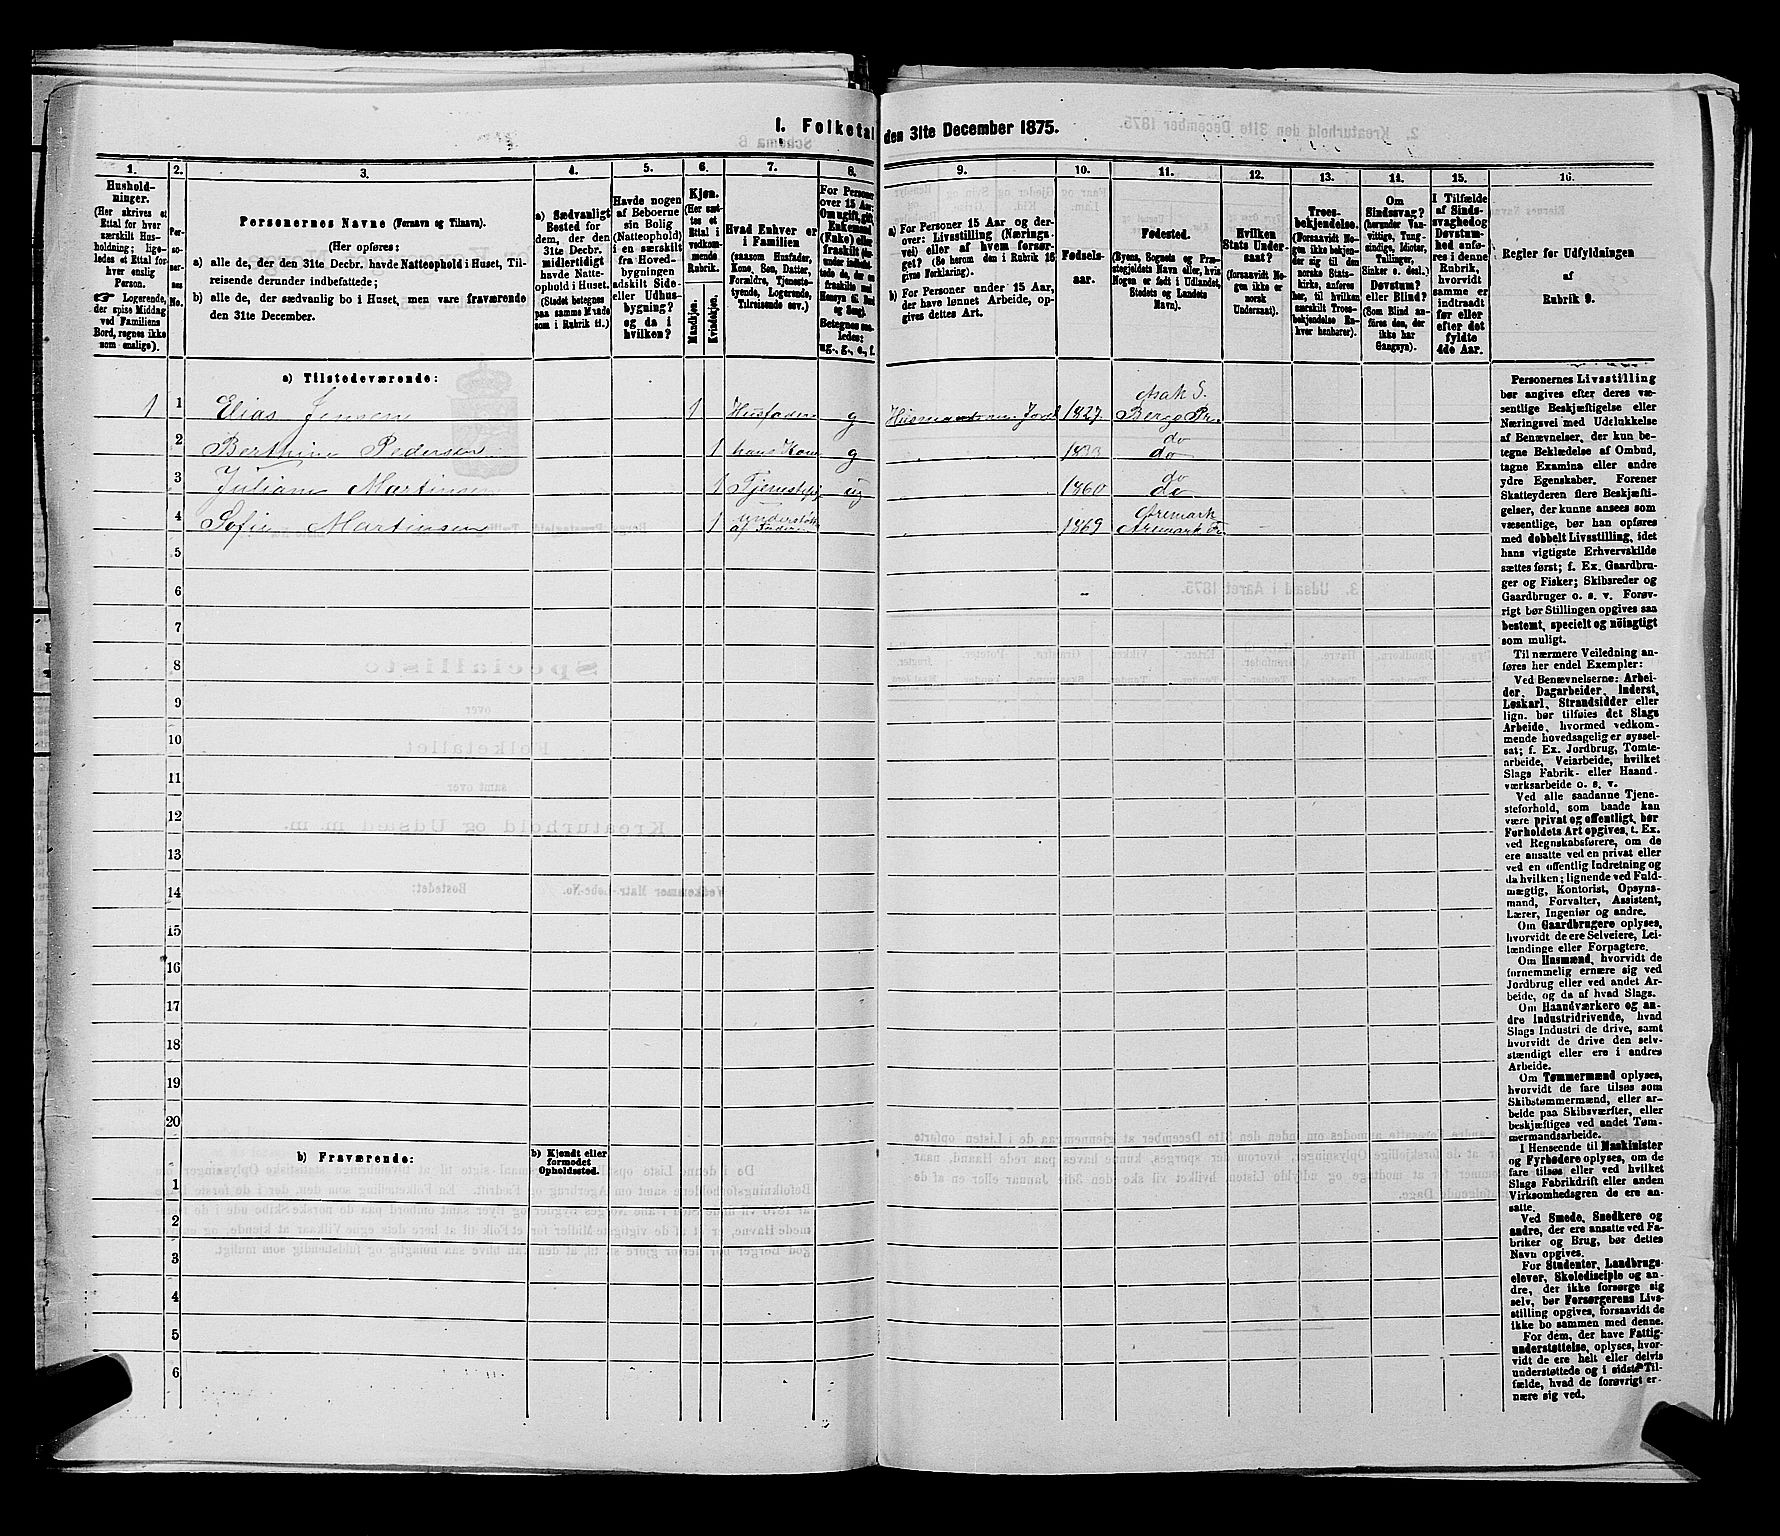 I. Folketal den 31te December 1875.
1.
Hushold-
ninger.
(Her skrives et
Ettal for hver
særskilt Hus-
holdning; lige-
ledes et Ettal for
hver enslig
Person.
☞ Logerende,
der spise Middag
ved Familiens
Bord, regnes ikke
som enslige).
2.
No.
3.
Personernes Navne (Fornavn og Tilnavn).
(Her opføres:
a) alle de, der den 31te Decbr. havde Natteophold i Huset, Til-
reisende derunder indbefattede;
b) alle de, der sædvanlig bo i Huset, men vare fraværende
den 31te December.
4.
a) Sædvanligt
Bosted for
dem, der den
31te Decbr.
midlertidigt
havde Natte-
ophold i Huset.
(Stedet betegnes
paa samme Maade
som i Rubrik 11.)
5.
Havde nogen
af Beboerne
sin Bolig
(Natteophold)
i en særskilt
fra Hoved-
bygningen
adskilt Side-
eller Udhus-
bygning?
og da i
hvilken?
6.
Kjøn.
(Her sæt-
tes et
Ettal i
vedkom-
mende
Rubrik.
Mandkjøn.
Kvindekjøn.
7.
Hvad Enhver er
i Familien
(saasom Husfader,
Kone, Søn, Datter,
Forældre, Tjeneste-
tyende, Logerende,
Tilreisende osv.)
8.
For Personer
over 15 Aar:
Om ugift, gift,
Enkemand
(Enke) eller
fraskilt
Betegnes saa-
ledes:
ug., g., e., f.
9.
a) For Personer 15 Aar og der-
over: Livsstilling (Nærings-
vei) eller af hvem forsør-
get? (Se herom den i Rubrik 16
givne Forklaring).
b) For Personer under 15 Aar,
der have lønnet Arbeide, op-
gives dettes Art.
10.
Fødsels-
aar.
11.
Fødested.
(Byens, Sognets og Præ-
stegjeldets Navn eller, hvis
Nogen er født i Udlandet,
Stedets og Landets
Navn).
12.
Hvilken
Stats Under-
saat?
(forsaavidt No-
gen ikke er
norsk
Undersaat).
13.
Troes-
bekjendelse.
(Forsaavidt No-
gen ikke bekjen-
der sig til den
norske Stats-
kirke, anføres
her, til hvilken
særskilt Troes-
bekjendelse En-
hver henhører).
14.
Om
Sindssvag?
(herunder Van-
vittige, Tung-
sindige, Idioter,
Tullinger,
Sinker o. desl.)
Døvstum?
eller Blind?
(Som Blind an-
føres den, der
ikke har
Gangsyn).
15.
I Tilfælde
af Sinds-
svaghed og
Døvstum-
hed anfø-
res i denne
Rubrik,
hvorvidt
samme er
indtraadt
før eller
efter det
fyldte
4de Aar.
16.
Regler for Udfyldningen
af
Rubrik 9.
a) Tilstedeværende:
1 1 Elias Jensen 1 Husfader g 1827 Berge Pr.
2 Berthine Pedersen 1 hans Kone g 1833 do do
3 Juliane Martinsen 1 ug 1860 do do
4 Sofie Martinsen 1 1869 Aremark Aremark Pr
5
6
7
8
9
10
11
12
13
14
15
16
17
18
19
20
b) Fraværende:
b) Kjendt eller
formodet
Opholdssted.
1
2
3
4
5
6
Personernes Livsstilling
bør angives efter deres væ-
sentlige Beskjæftigelse eller
Næringsvei med Udelukkelse
af Benævnelser, der kun be-
tegne Beklædelse af Ombud,
tagne Examina eller andre
ydre Egenskaber. Forener
Skatteyderen flere Beskjæfti-
gelser, der kunne ansees som
væsentlige, bør han opføres
med dobbelt Livsstilling, idet
hans vigtigste Erhvervskilde
sættes først; f. Ex. Gaardbru-
ger og Fisker; Skibsreder og
Gaardbruger o. s. v. Forøv-
rigt bør Stillingen opgives saa
bestemt, specielt og nöiagtigt
som muligt.
Til nærmere Veiledning an-
føres her endel Exempler:
Ved Benævnelserne: Arbei-
der, Dagarbeider, Inderst,
Løskarl, Strandsidder eller
lign. bør tilføies det Slags
Arbeide, hvormed vedkom-
mende hovedsagelig er syssel-
sat; f. Ex. Jordbrug, Tomte-
arbeide, Veiarbeide, hvilket
Slags Fabrik- eller Haand-
værksarbeide o. s. v.
Ved alle saadanne Tjene-
steforhold, som baade kan
være privat og offentligt, bør
Forholdets Art opgives, t. Ex.
ved Regnskabsførere, om de
ere ansatte ved en privat eller
ved en offentlig Indretning og
da hvilken; lignende ved Fuld-
mægtig, Kontorist, Opsyns-
mand, Forvalter, Assistent,
Lærer, Ingeniør og andre.
Om Gaardbrugere oplyses,
hvorvidt de ere Selveiere, Lei-
lændinge eller Forpagtere.
Om Husmænd, hvorvidt de
fornemmelig ernære sig ved
Jordbrug eller ved andet Ar-
beide, og da af hvad Slags.
Om Haandværkere og an-
dre Industridrivende, hvad
Slags Industri de drive, samt
hvorvidt de drive den selv-
stændigt eller ere i andres
Arbeide.
Om Tømmermænd oplyses,
hvorvidt de fare tilsøs som
Skibstømmermænd, eller ar-
beide paa Skibsværfter, eller
beskjæftiges ved andet Tøm-
mermandsarbeide.
I Henseende til Maskinister
og Fyrbødere oplyses, om de
fare tilsøs eller ved hvilket
Slags Fabrikdrift eller anden
Virksomhedsgren de ere an-
satte.
Ved Smede, Snedkere og
andre, der ere ansatte ved Fa-
briker og Brug, bør dettes
Navn opgives.
For Studenter, Landbrugs-
elever, Skoledisciple og an-
dre, der ikke forsørge sig
selv, bør Forsørgerens Livs-
stilling opgives, forsaavidt de
ikke bo sammen med denne.
For dem, der have Fattig-
understøttelse, oplyses, hvor-
vidt de ere helt eller delvis
understøttede og i sidste Til-
fælde, hvad de forøvrigt er-
nære sig ved.